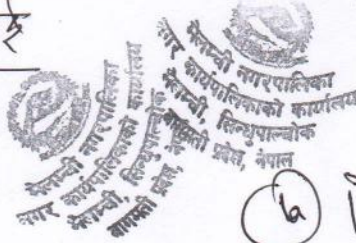 मेलम्ची नगरपालिका
नगर कार्यपालिकाको कार्यालय
मेलम्ची, सिन्धुपाल्चोक
बागमती प्रदेश, नेपाल
मेलम्ची नगरपालिका
नगर कार्यपालिकाको कार्यालय
मेलम्ची, सिन्धुपाल्चोक
बागमती प्रदेश, नेपाल